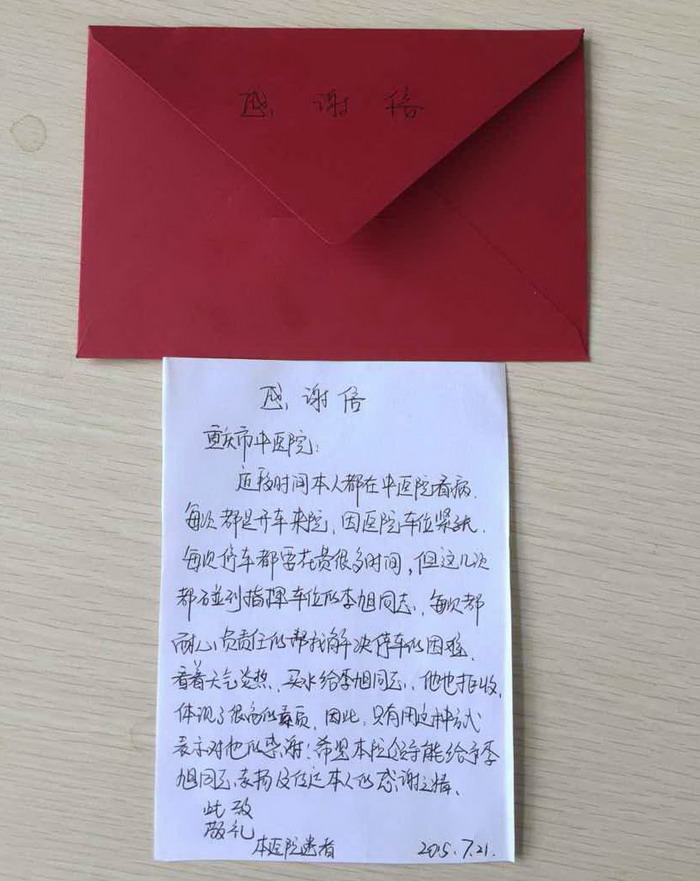 感谢信
感谢信
重庆市中医院：
近段时间本人都在中医院看病.
每次都是开车来院，因医院车位紧张.
每次停车都要花费很多时间，但这几次
都碰到指挥车位的李旭同志，每次都
耐心负责任的帮我解决停车的困难.
看着天气炎热、买水给李旭同志、他也拒收.
体现了很高的素质，因此，只有用这种方式
表示对他的感谢！希望本院领导能给予李
旭同志表扬及传达本人的感谢之情.
此致
敬礼
本医院患者 2015.7.21.